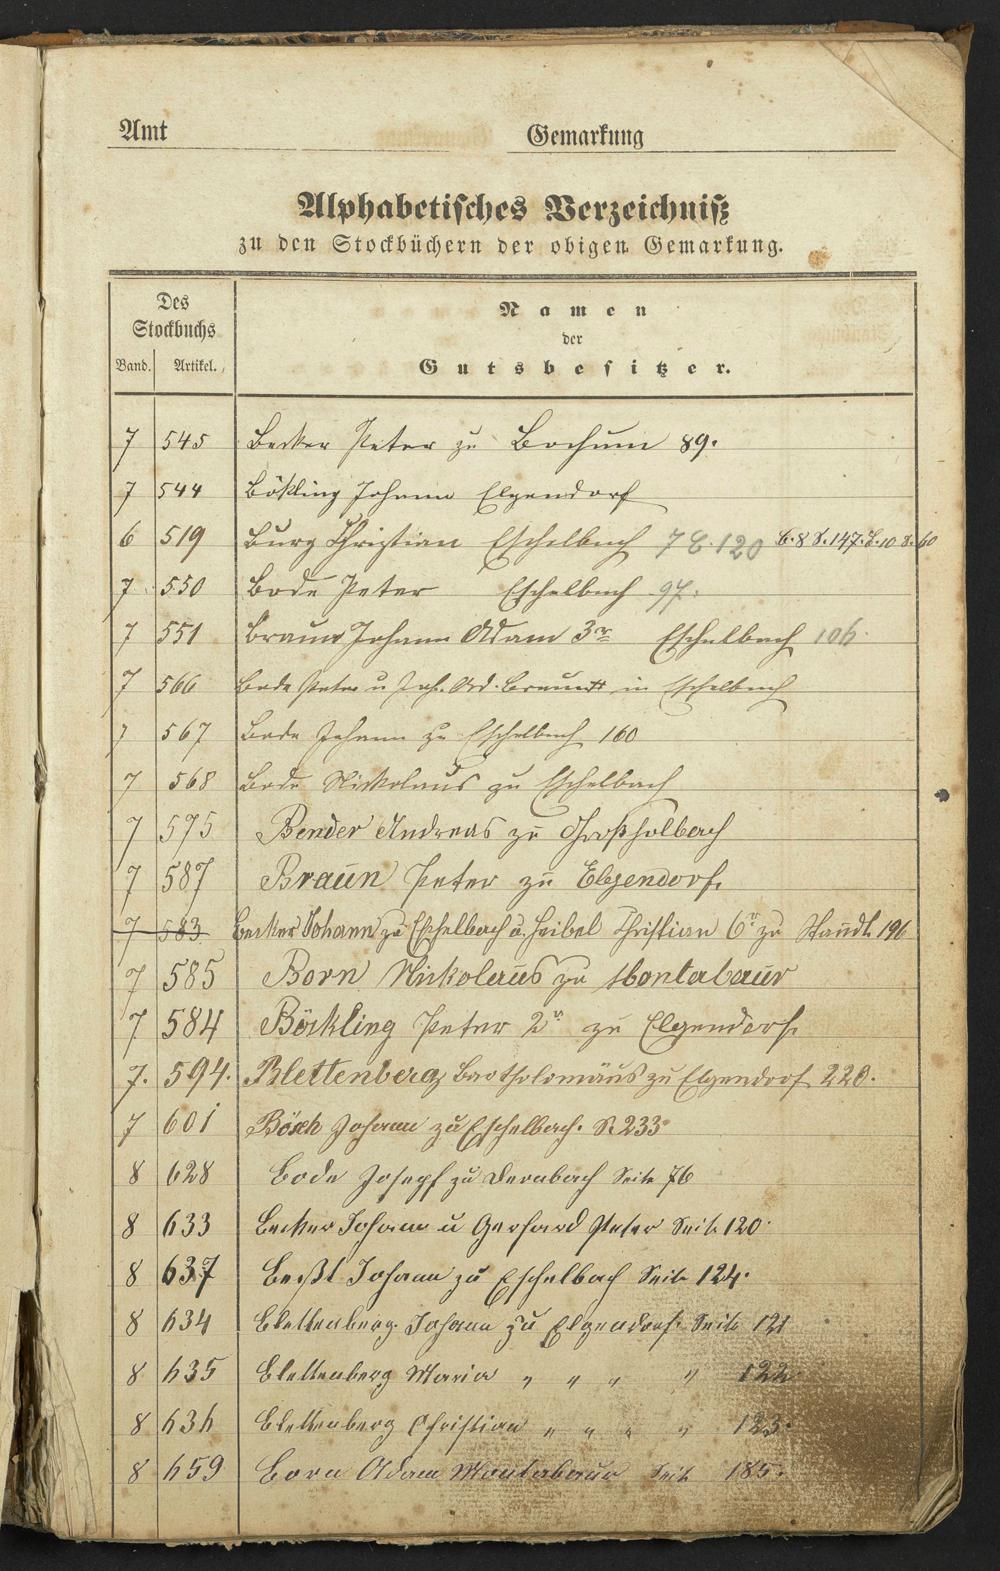 Amt Gemarkung
Alphabetisches Verzeichniß
zu den Stockbüchern der obigen Gemarkung.
Des
Stockbuchs
Band. Artikel.
Namen
der
Gutsbesitzer.
7 545 Becker Peter zu Bochum 89.
7 544 Bökling Johann Elgendorf
6 519 Burg Christian Eschelbach 7 B. 120 B. 8 S. 147. B. 10 S. 60
7 550 Bode Peter Eschelbach 97.
7 551 Braun Johann Adam 3r Eschelbach 106.
7 566 Bode Peter u Joh. Ad. Braun in Eschelbach
7 567 Bode Johann zu Eschelbach 160
7 568 Bode Nickolaus zu Eschelbach
7 575 Bender Andreas zu Großholbach
7 587 Braun Peter zu Elgendorf.
7 583 Becker Johann zu Eschelbach u. Heibel Christian 6r zu Staudt 196
7 585 Born Nickolaus zu Montabaur
7 584 Böckling Peter 2r zu Elgendorf.
7. 594. Blettenberg Bartholomäus zu Elgendorf 220.
7 601 Bösch Johann zu Eschelbach. S. 233
8 628 Bode Joseph zu Dernbach Seite 76
8 633 Becker Johann u Gerhard Peter Seite 120.
8 637 Johann zu Eschelbach Seite 124.
8 634 Blettenberg Johann zu Elgendorf. Seite 121
8 635 Blettenberg Maria " " " " 122
8 636 Blettenberg Christian " " " " 123.
8 659 Born Adam Montabaur Seite 185.